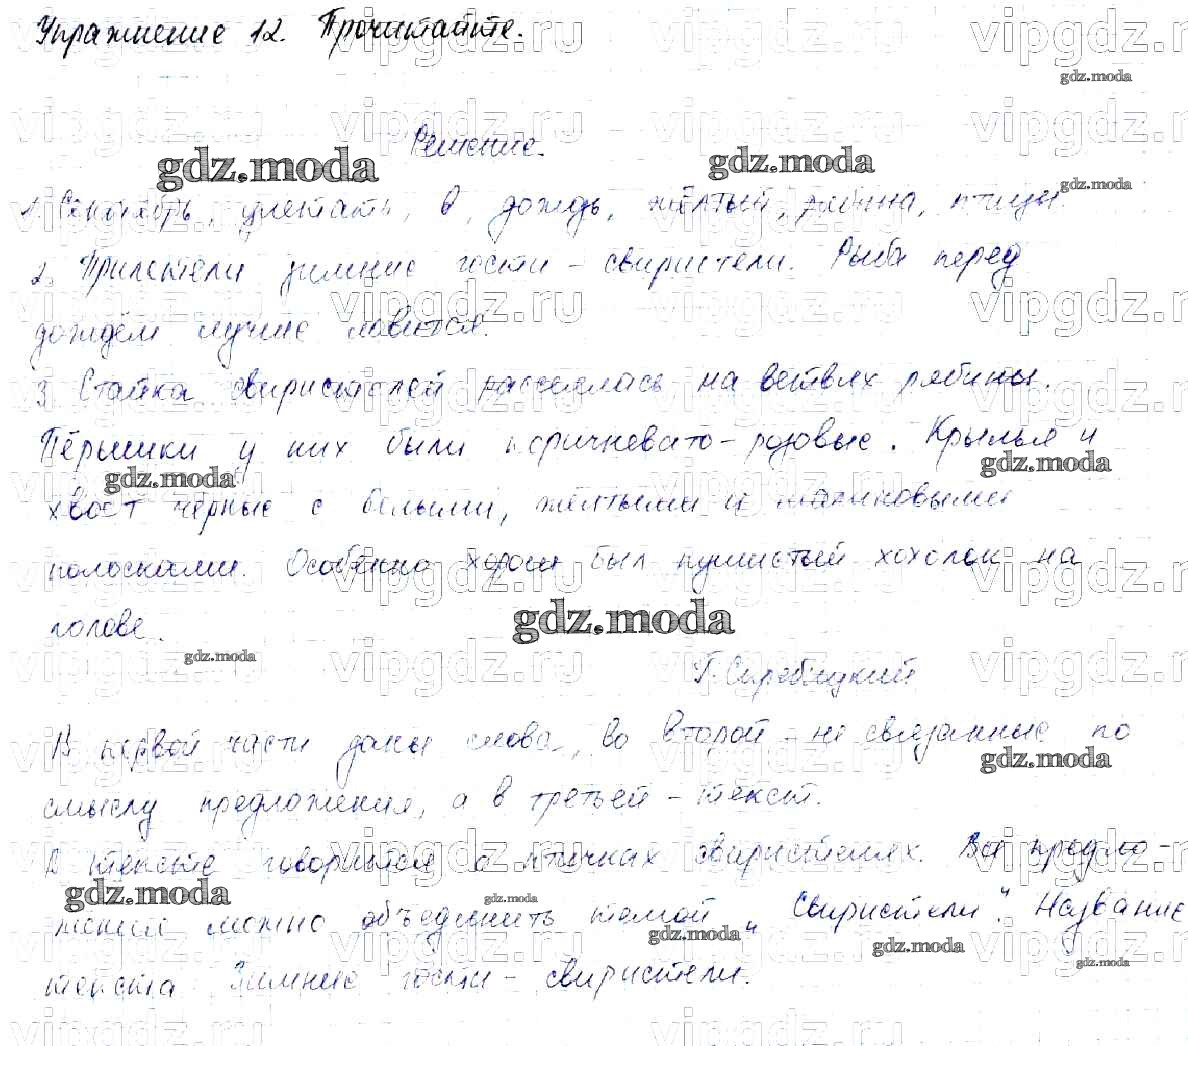 Упражнение 12. Прочитайте.
Решение.
1. Сентябрь, улетать, в, дождь, жёлтый, рябина, птицы
2. Прилетели зимние гости - свиристели. Рыба перед
дождём лучше ловится.
3. Стайка свиристелей расселась на ветвях рябины.
Пёрышки у них были коричневато-розовые. Крылья и
хвост чёрные с белыми, жёлтыми и малиновыми
полосками. Особенно хорош был пушистый хохолок на
голове.
Г. Скребицкий
В первой части даны слова, во второй - не связанные по
смыслу предложения, а в третьей - текст.
В тексте говорится о птичках свиристелях. Все предло-
жения можно объединить темой "Свиристели". Название
текста Зимние гости - свиристели.
gdz.moda
vipgdz.ru